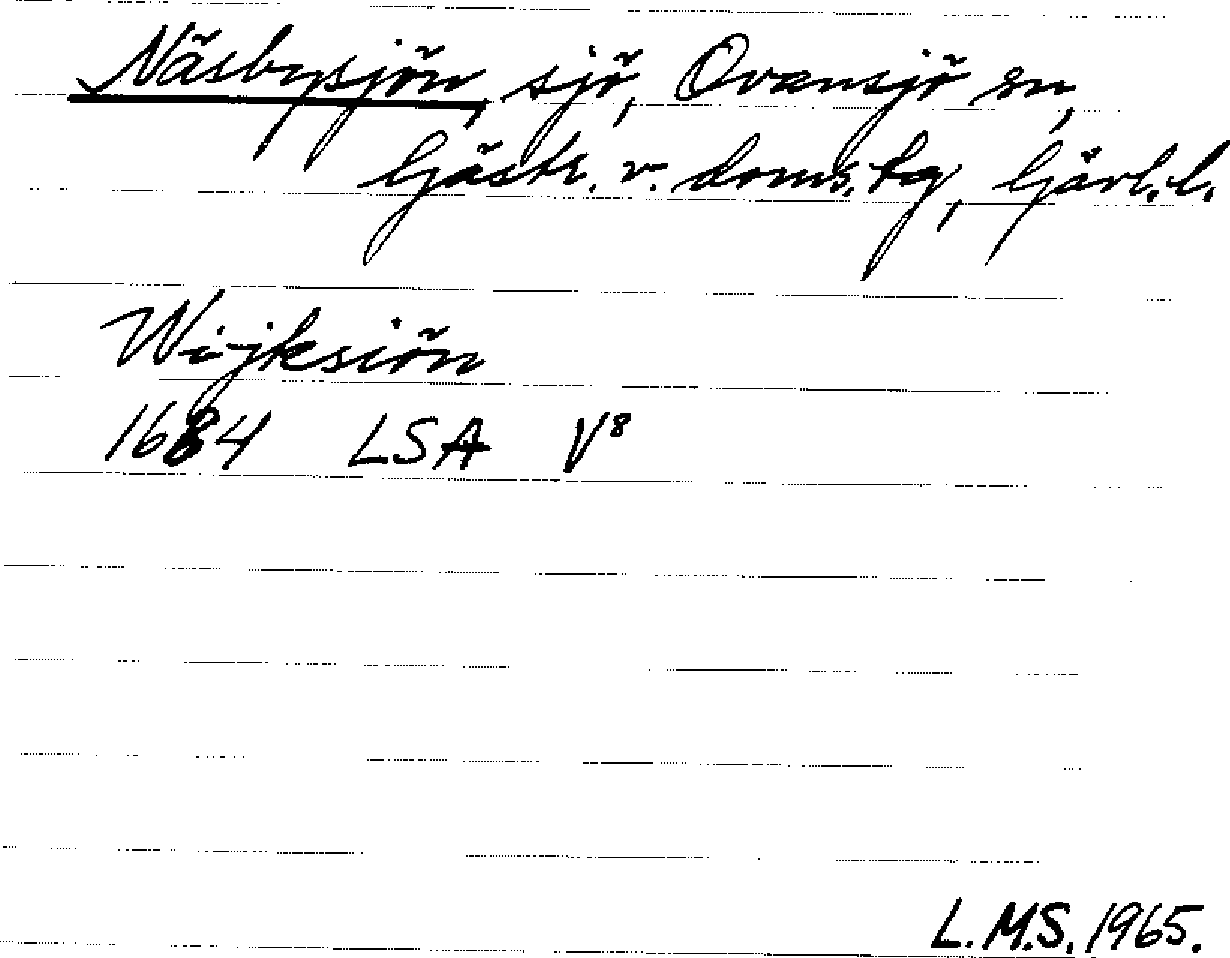 Näsbysjön, sjö, Ovansjö sn,
Gästr. v. doms. tg, Gävl. l.
Wijksiön
1684 LSA V⁸
L.M.S. 1965.